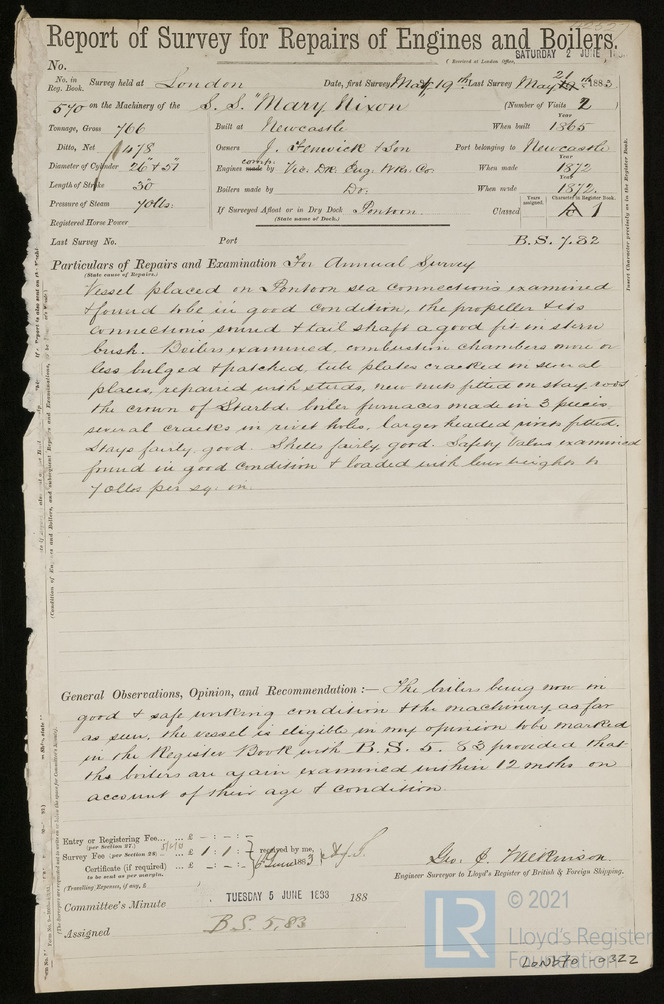 Report of Survey for Repairs of Engines and Boilers.
(Received at London Office, SATURDAY 2 JUNE 18
No.
No. in Reg. Book. Survey held at London Date, first Survey May 19th Last Survey May 21 th 1883
570 on the Machinery of the S.S. "Mary Nixon (Number of Visits 2)
Tonnage, Gross 766 Built at Newcastle When built Year 1865
Ditto, Net 478 Owners J. Fenwick & Son Port belonging to Newcastle
Diameter of Cylinder 26" & 51" Engines comp. made by Vic. Dk. Eng. Wks. Co. When made Year 1872
Length of Stroke 30 Boilers made by Do. When made Year 1872.
Pressure of Steam 70lbs. If Surveyed Afloat or in Dry Dock Pontoon. Classed Years assigned. Character in Register Book. A 1
(State name of Dock.)
Registered Horse Power
Last Survey No. Port B.S. 7.82
Insert Character precisely as in the Register Book.
Particulars of Repairs and Examination For Annual Survey
(State cause of Repairs.)
Vessel placed on Pontoon sea connections examined
& found to be in good condition, the propeller & its
connections sound & tail shaft a good fit in stern
bush. Boilers examined, combustion chambers more or
less bulged & patched, tube plates cracked in several
places, repaired with studs, new nuts fitted on stay rods
the crown of Starbd. boiler furnaces made in 3 pieces
several cracks in rivet holes, larger headed rivets fitted.
Stays fairly good. Shells fairly good. Safety Valves examined
found in good condition & loaded with
70lbs per sq. in.
General Observations, Opinion, and Recommendation :— The boilers being now in
good & safe working condition & the machinery as far
as seen, the vessel is eligible in my opinion to be marked
in the Register Book with B.S. 5. 83 provided that
the boilers are again examined within 12 mths on
account of their age & condition.
Entry or Registering Fee... ... £ - : - : -
(per Section 27.)
Survey Fee (per Section 28) ... £ 1 : 1 : - received by me,
Certificate (if required) ... £ - : - : - 6 June 1883
to be sent as per margin.
(Travelling Expenses, if any, £
Geo. C. Wilkinson.
Engineer Surveyor to Lloyd's Register of British & Foreign Shipping.
Committee's Minute TUESDAY 5 JUNE 1883 188
Assigned B.S. 5.83
LR © 2021
Lloyd's Register
Foundation
LON670-0322